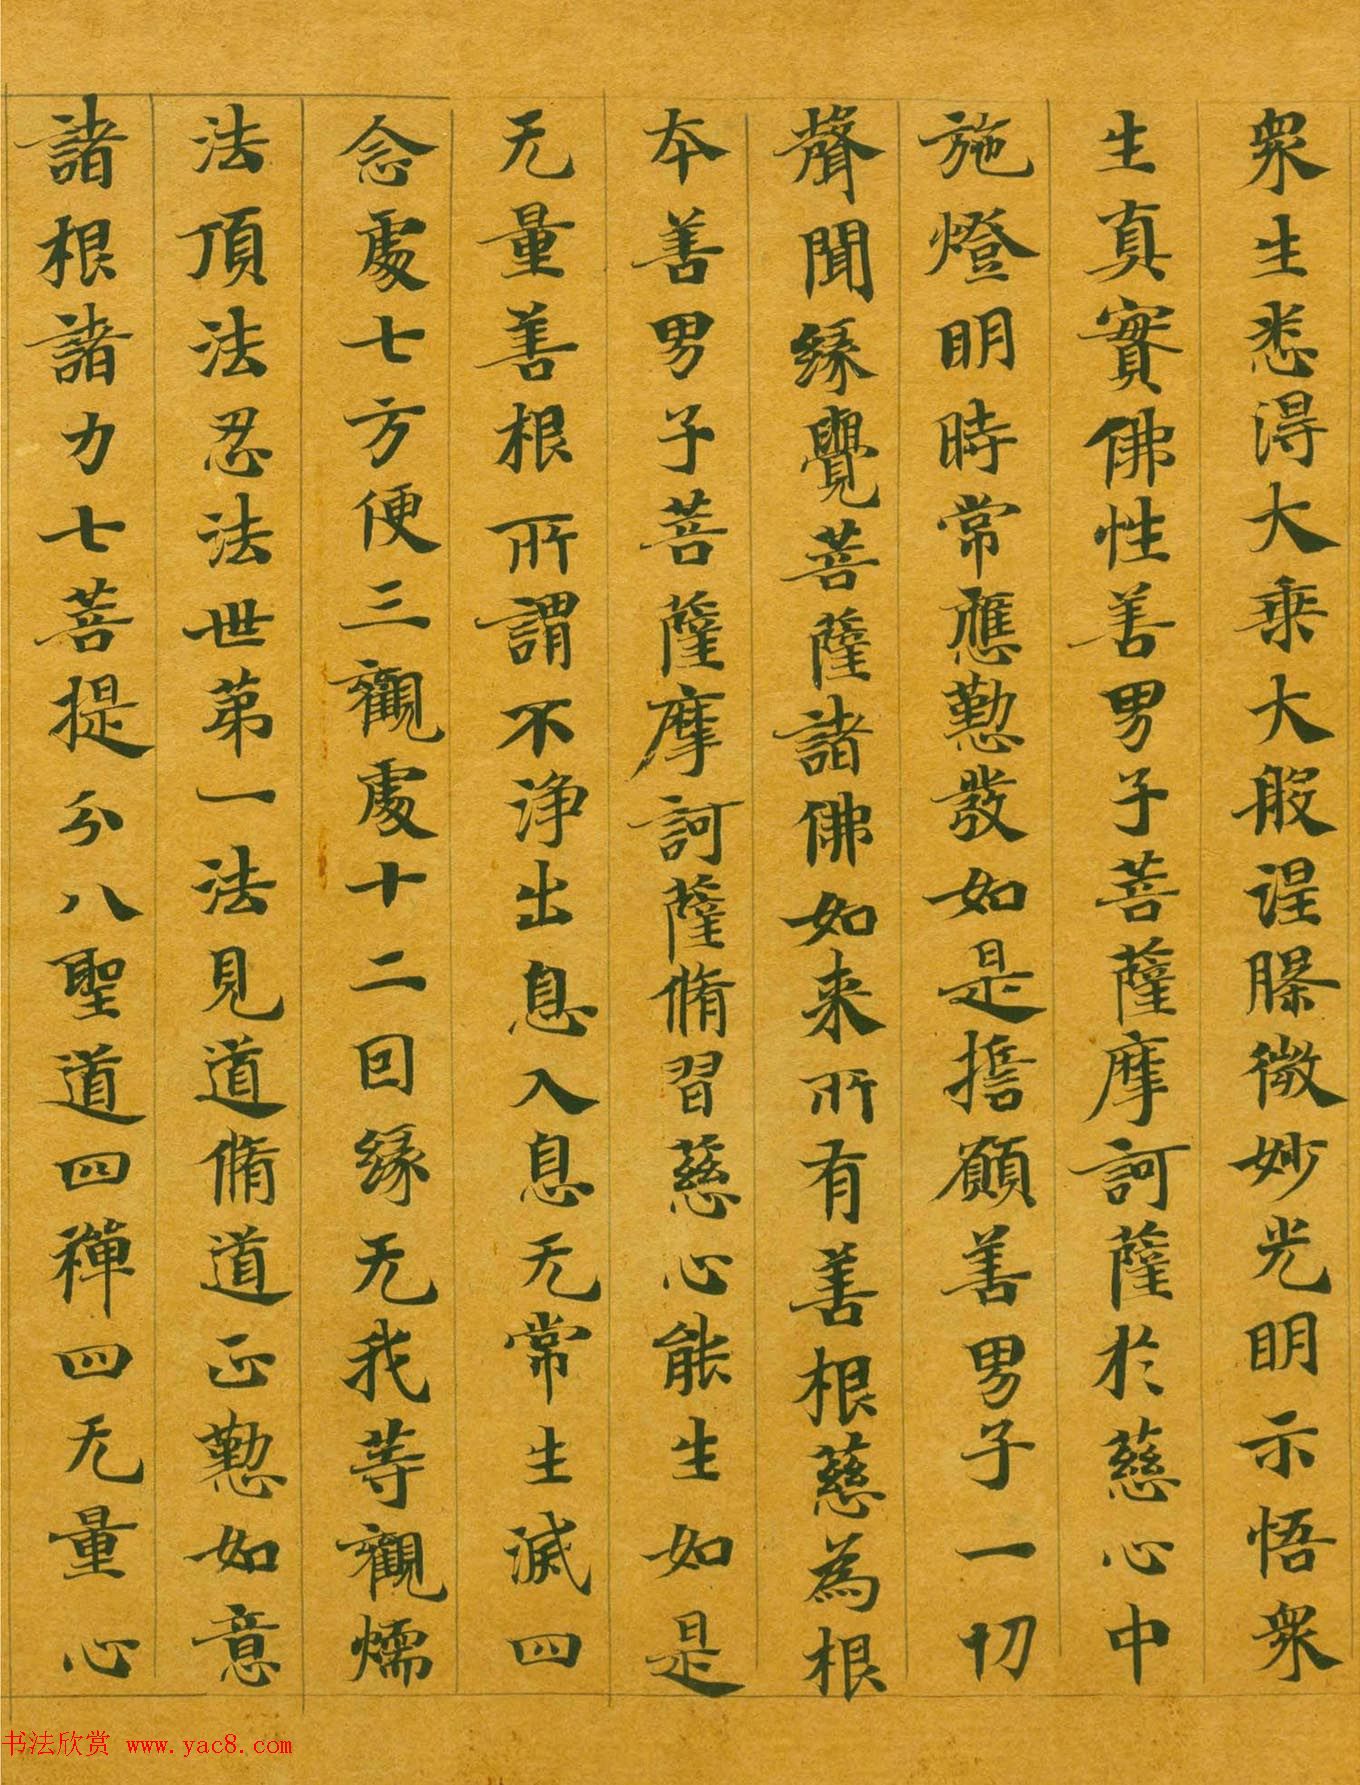 衆生悉得大乗大般涅槃微妙光明示悟衆
生真實佛性善男子菩薩摩訶薩於慈心中
施燈明時常應懃發如是擔願善男子一切
聲聞緣覺菩薩諸佛如来所有善根慈為根
本善男子菩薩摩訶薩脩習慈心能生如是
无量善根所謂不淨出息入息无常生滅四
念處七方便三觀處十二因緣无我等觀燸
法頂法忍法世第一法見道脩道正懃如意
諸根諸力七菩提分八聖道四禪四无量心
书法欣赏 www.yac8.com